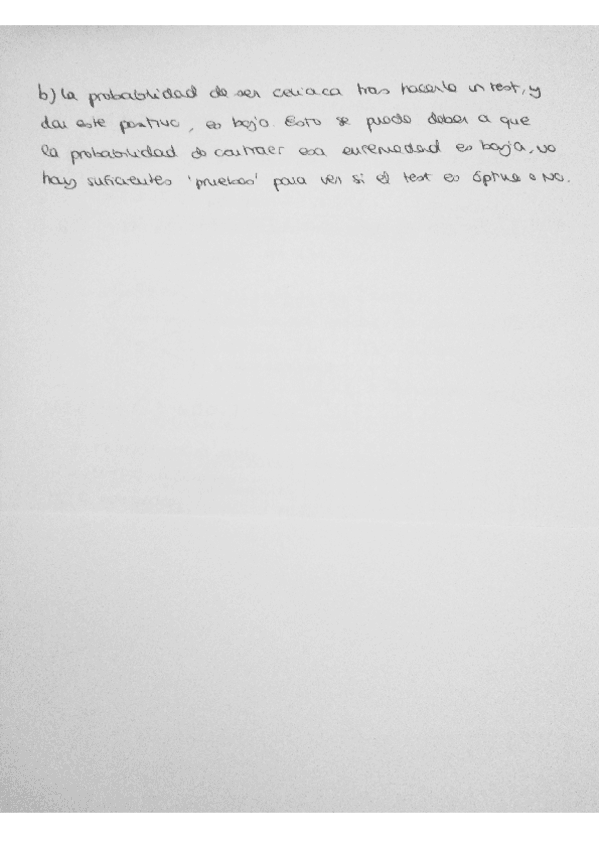 b) La probabilidad de ser celiaca tras hacerle un test, y
dar este positivo, es baja. Esto se puede deber a que
la probabilidad de contraer esa enfermedad es baja, no
hay suficientes 'pruebas' para ver si el test es óptimo o NO.